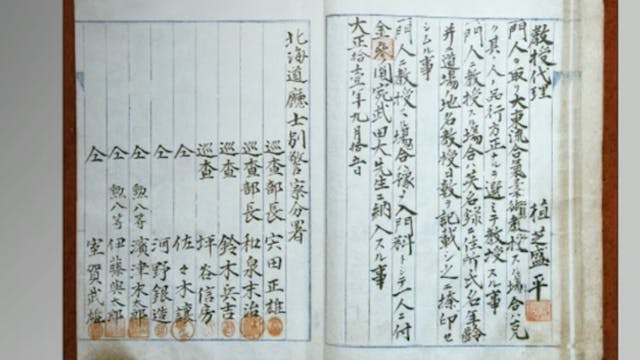 教授代理 植芝盛平
門人ヲ取リ大東流合氣柔術教授スル場合ハ克
ク其ノ人ノ品行方正ナルヲ選ミテ教授スル事
門人ニ教授スル場合ハ英名録ニ住所氏名年齢
并ニ道場地名教授日数ヲ記載シ之ニ捺印セ
シムル事
門人ニ教授スル場合 入門料トシテ一人ニ付
金参圓宛武田大先生ニ納入スル事
大正拾壹年九月拾五日
北海道廳士別警察分署
巡査部長 宍田正雄
巡査部長 和泉末治
巡査 鈴木兵吉
巡査 坪谷信房
仝 佐々木譲
仝 河野銀造
仝 勲八等 濱津末郎
仝 勲八等 伊藤與太郎
仝 室賀武雄